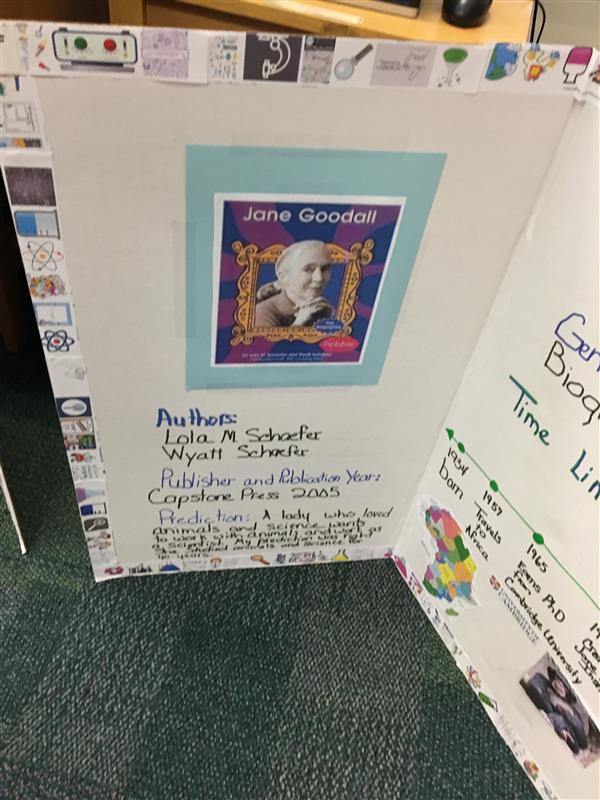 Jane Goodall
First Biographies
Pebble
by Lola M. Schaefer and Wyatt Schaefer
Authors:
Lola M Schaefer
Wyatt Schaefer
Publisher and Publication Year:
Capstone Press 2005
Prediction: A lady who loved
animals and science wants
to work with animals and work as
a scientist. My prediction was right
She studied animals and science for
years.
Biog
Time Lin
1934
born
1957
Travels
to
Africa
1965
Earns PhD
from
Cambridge University
UNIVERSITY OF
CAMBRIDGE